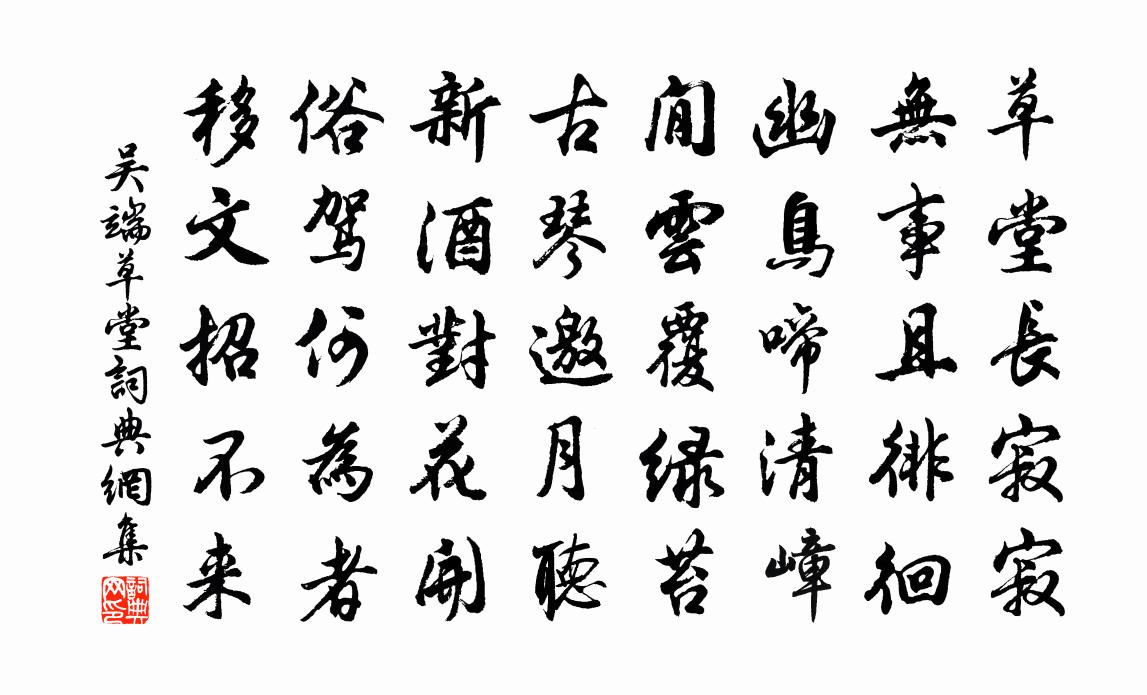 草堂長寂寂
無事且徘徊
幽鳥啼清嶂
閒雲覆緑苔
古琴邀月聽
新酒對花開
俗駕何為者
移文招不来
吴端草堂詞典網集
詞典